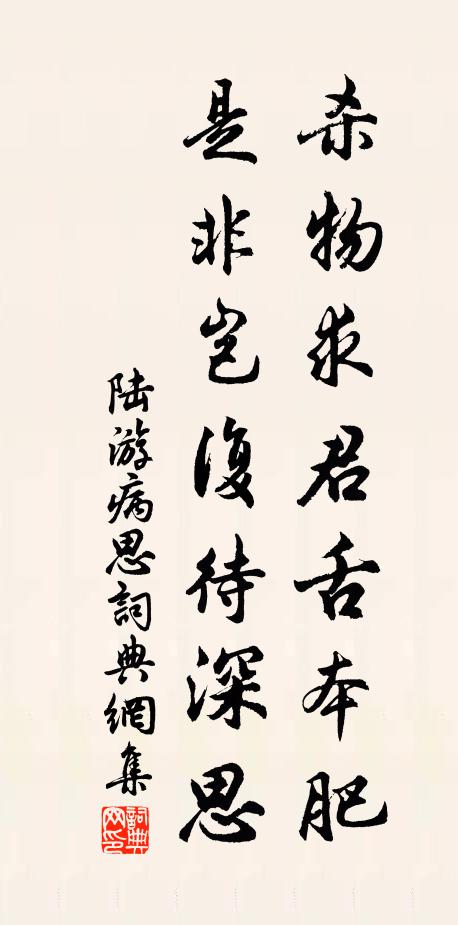 杀物求君舌本肥
是非岂復待深思
陆游病思詞典網集
詞典网印